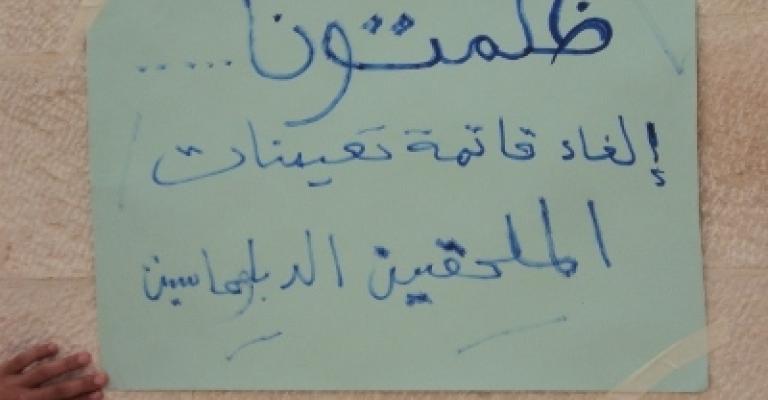 ظلمتونا.....
إلغاء قائمة تعيينات
الملحقين الدبلوماسين